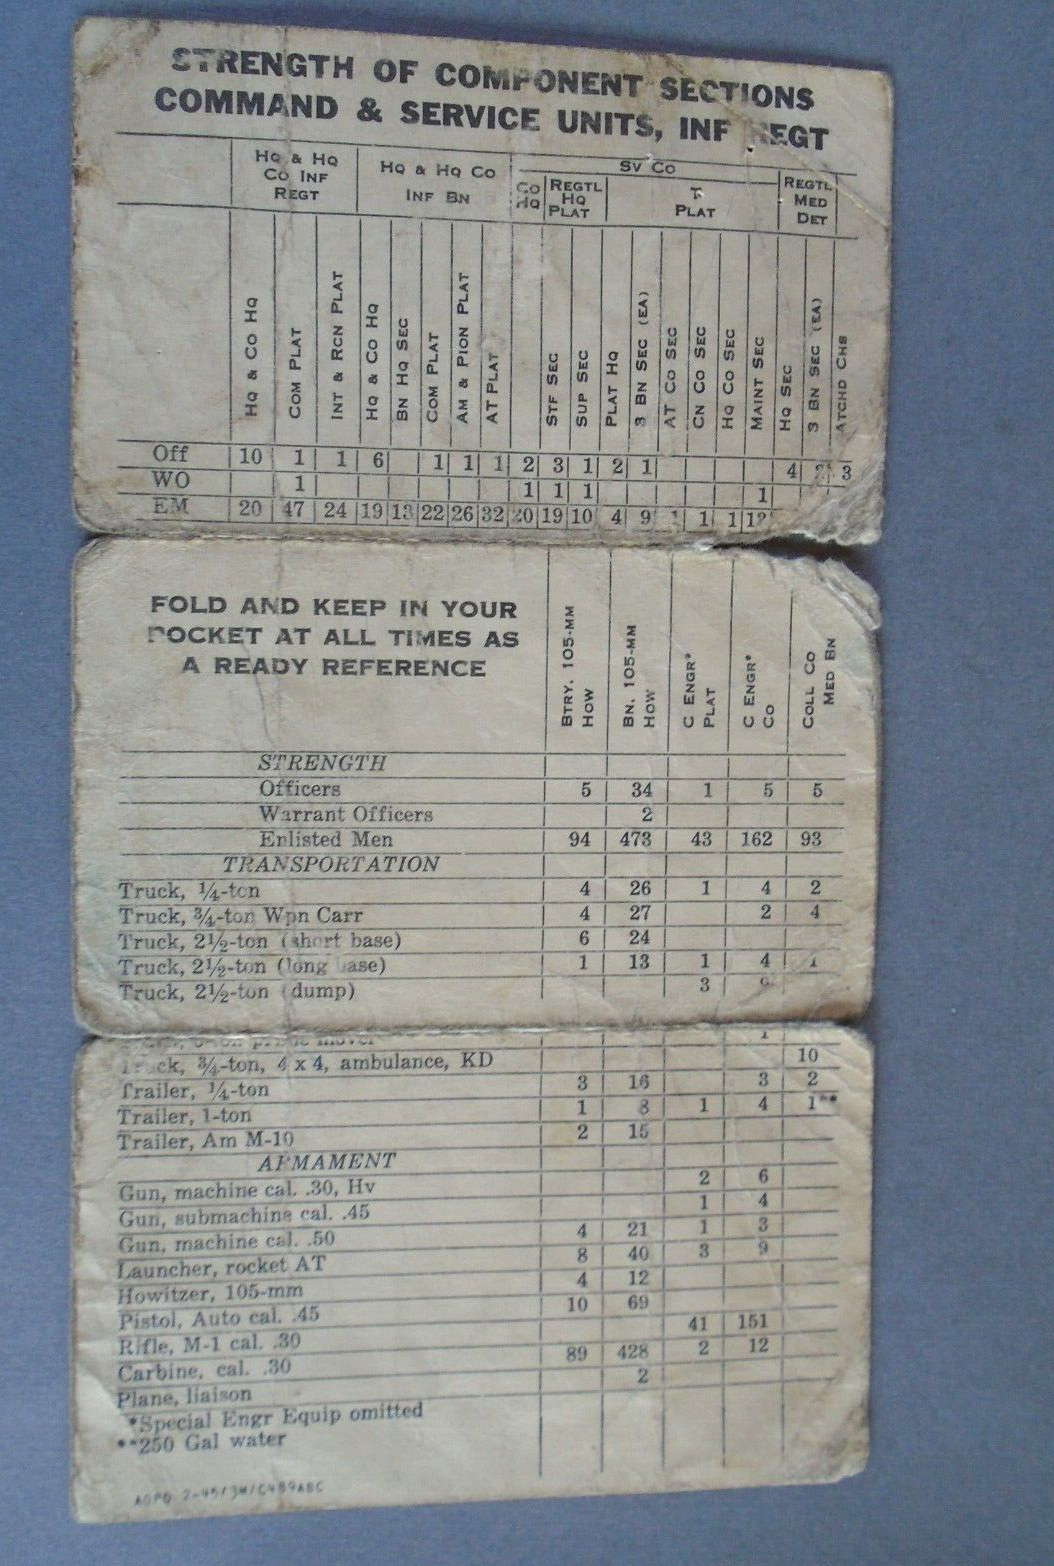 STRENGTH OF COMPONENT SECTIONS
COMMAND & SERVICE UNITS, INF REGT
HQ & HQ CO INF REGT
HQ & HQ CO INF BN
SV CO
CO HQ
REGTL HQ PLAT
T PLAT
REGTL MED DET
HQ & CO HQ
COM PLAT
INT & RCN PLAT
HQ & CO HQ
BN HQ SEC
COM PLAT
AM & PION PLAT
AT PLAT
STF SEC
SUP SEC
PLAT HQ
3 BN SEC (EA)
AT CO SEC
CN CO SEC
HQ CO SEC
MAINT SEC
HQ SEC
3 BN SEC (EA)
ATCHD CHS
Off 10 1 1 6 1 1 1 2 3 1 2 1 4 2 3
WO 1 1 1 1 1
EM 20 47 24 19 13 22 26 32 20 19 10 4 9 1 1 1
FOLD AND KEEP IN YOUR
POCKET AT ALL TIMES AS
A READY REFERENCE
BTRY. 105-MM HOW
BN. 105-MM HOW
C ENGR* PLAT
C ENGR* CO
COLL CO MED BN
STRENGTH
Officers 5 34 1 5 5
Warrant Officers 2
Enlisted Men 94 473 43 162 93
TRANSPORTATION
Truck, ¼-ton 4 26 1 4 2
Truck, ¾-ton Wpn Carr 4 27 2 4
Truck, 2½-ton (short base) 6 24
Truck, 2½-ton (long base) 1 13 1 4 1
Truck, 2½-ton (dump) 3 9
prime mover 1
Truck, ¾-ton, 4 x 4, ambulance, KD 10
Trailer, ¼-ton 3 16 3 2
Trailer, 1-ton 1 8 1 4 1**
Trailer, Am M-10 2 15
ARMAMENT
Gun, machine cal. .30, Hv 2 6
Gun, submachine cal. .45 1 4
Gun, machine cal. .50 4 21 1 3
Launcher, rocket AT 8 40 3 9
Howitzer, 105-mm 4 12
Pistol, Auto cal. .45 10 69
Rifle, M-1 cal. .30 41 151
Carbine, cal. .30 89 428 2 12
Plane, liaison 2
*Special Engr Equip omitted
**250 Gal water
AGPD 2-45/3M/C489ABC